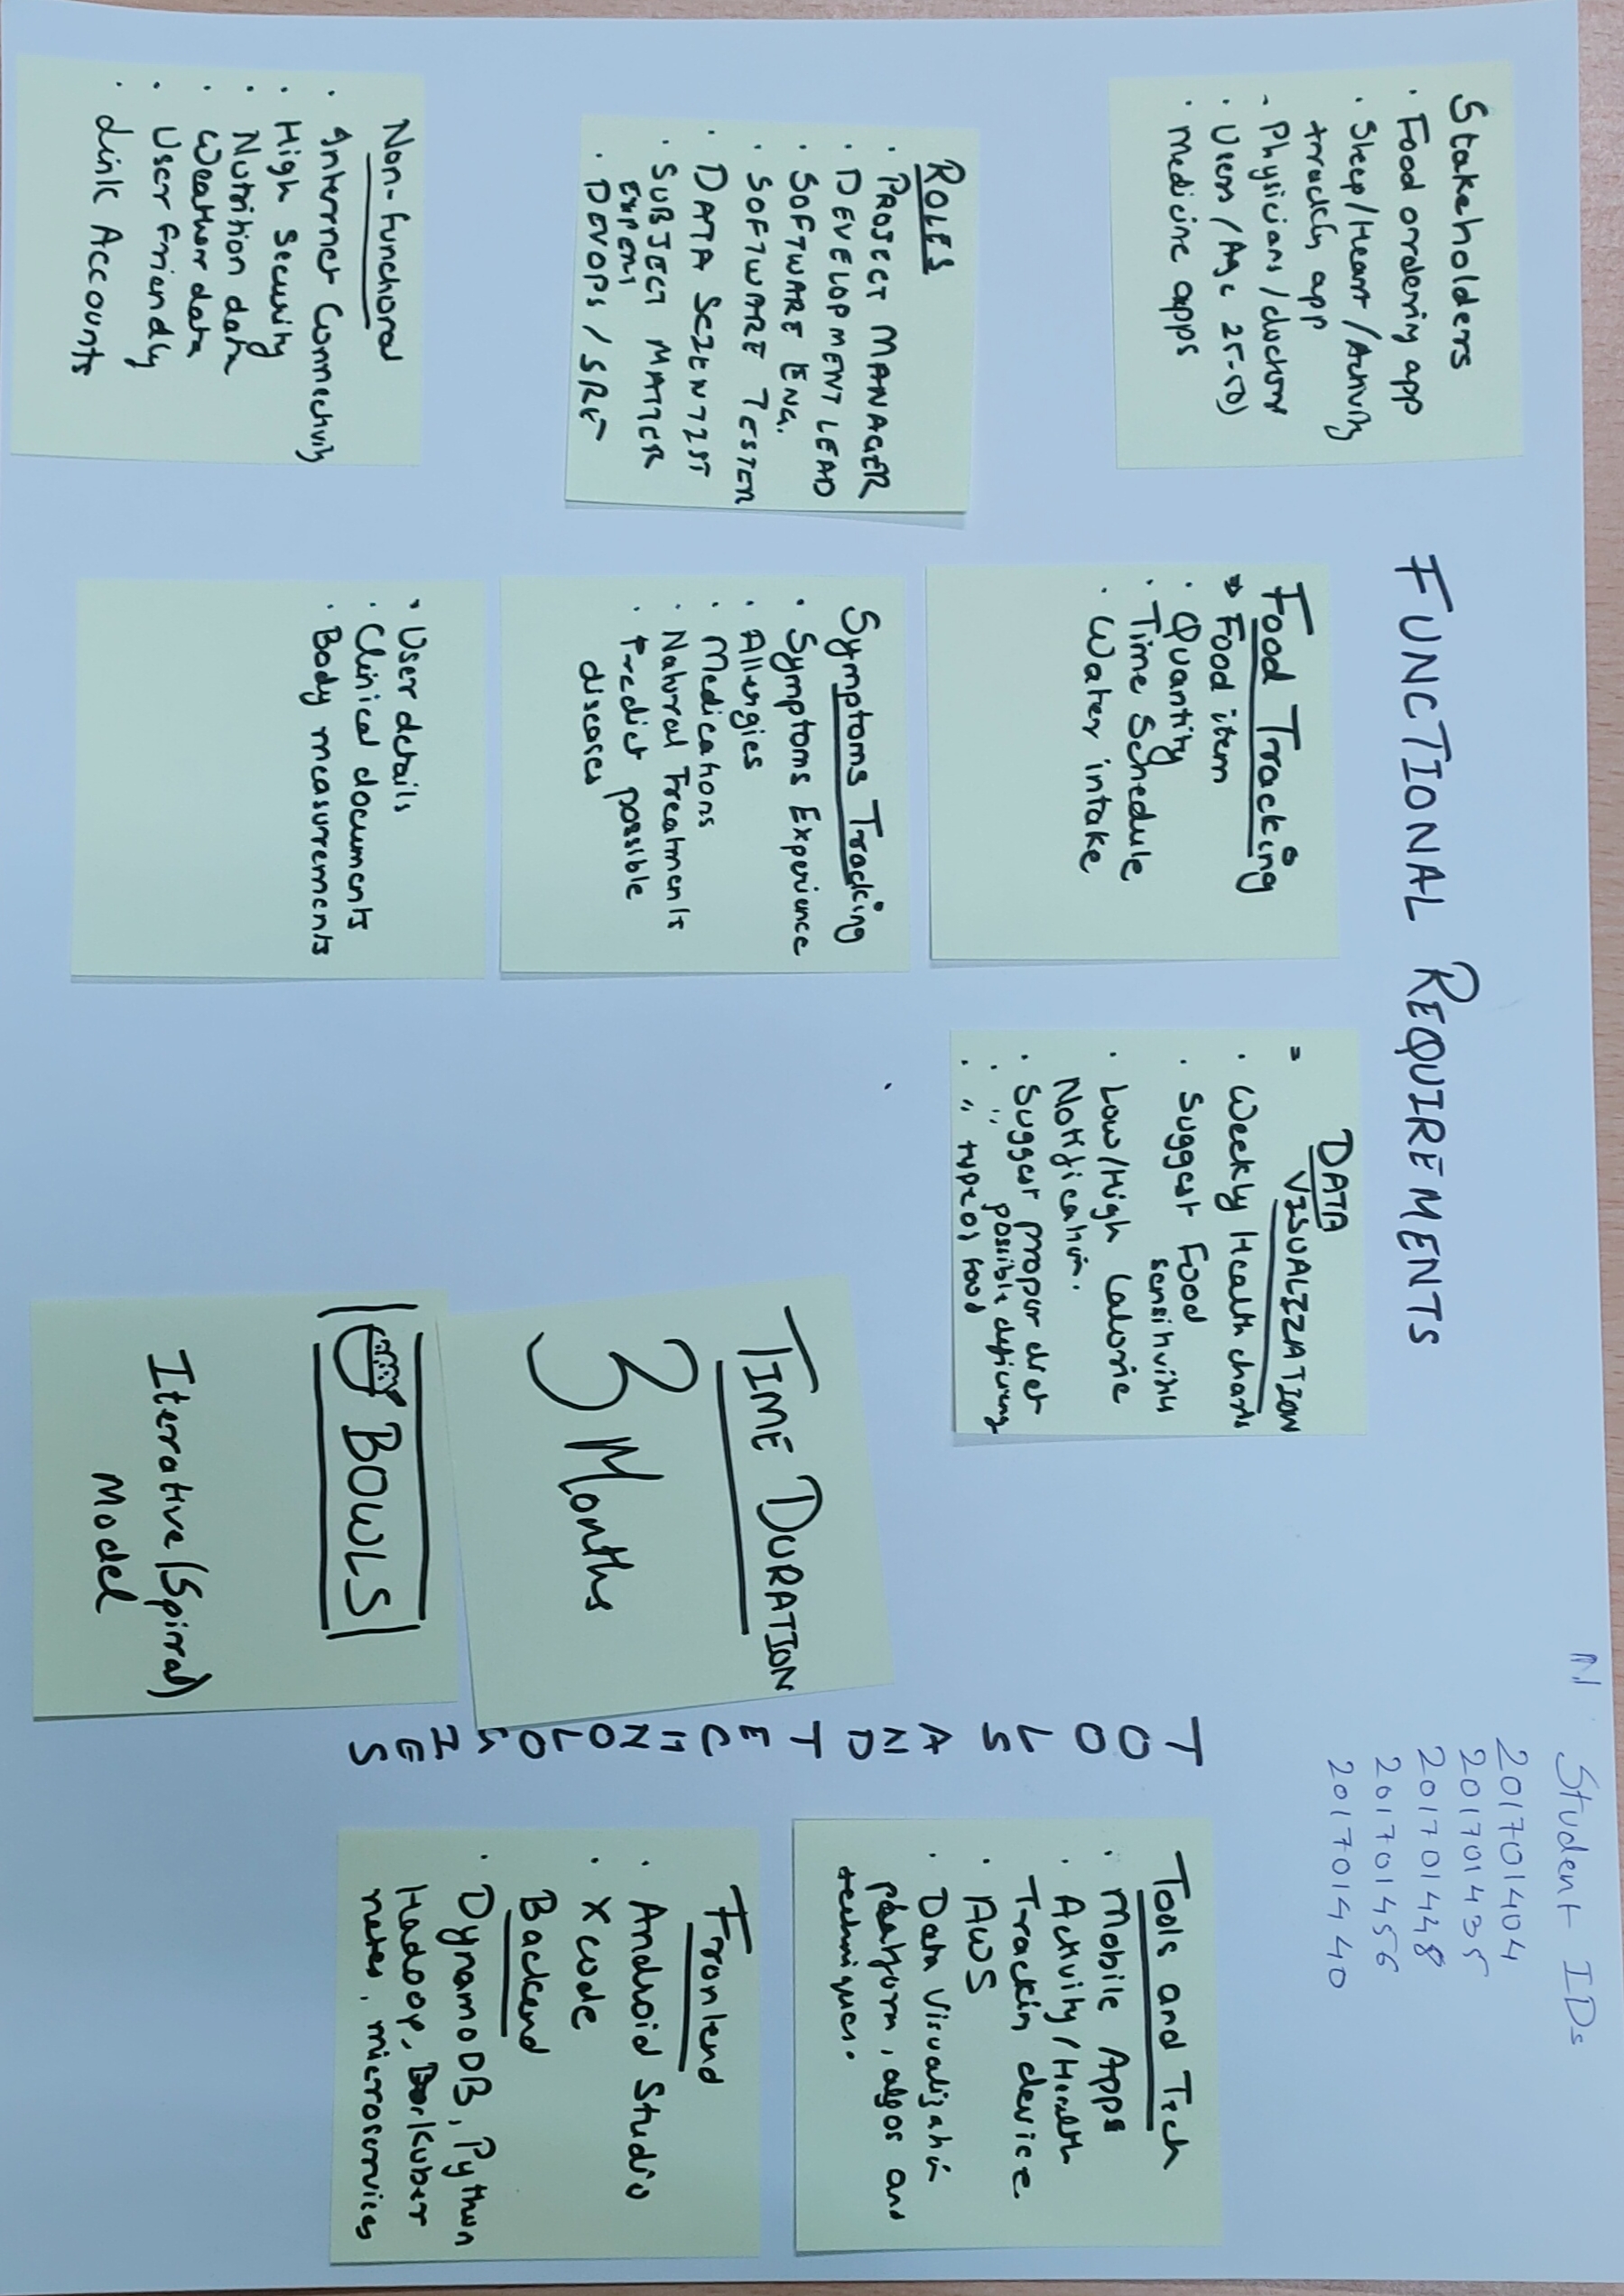 FUNCTIONAL REQUIREMENTS
Student IDs
201701404
201701435
201701448
201701456
201701440
Stakeholders
· Food ordering app
· Sleep/Heart/Activity
tracking app
- Physicians/doctors
· Users/Age 25-50)
· Medicine apps
ROLES
· PROJECT MANAGER
· DEVELOPMENT LEAD
· SOFTWARE ENG.
· SOFTWARE TESTER
· DATA SCIENTIST
· SUBJECT MATTER
EXPERT
· DEVOPS / SRE
Non-functional
· Internet Connectivity
· High Security
· Nutrition data
· Weather data
· User friendly
· Link Accounts
Food Tracking
Food item
· Quantity
· Time Schedule
· Water intake
Symptoms Tracking
· Symptoms Experience
· Allergies
· Medications
· Natural Treatments
· Predict possible
diseases
· User details
· Clinical documents
· Body measurements
DATA
VISUALIZATION
· Weekly Health charts
· Suggest Food
sensitivity
· Low/High Calorie
Notification.
· Suggest proper diet
· " possible
· " type of food
TIME DURATION
3 Months
BOWLS
Iterative/Spiral)
Model
TOOLS AND TECHNOLOGIES
Tools and Tech
· Mobile Apps
· Activity/Health
Trackin device
· AWS
· Data Visualizatin
platform, algos and
techniques.
Frontend
· Android Studio
· Xcode
Backend
· DynamoDB, Python
Hadoop, Kuber
netes, microservices